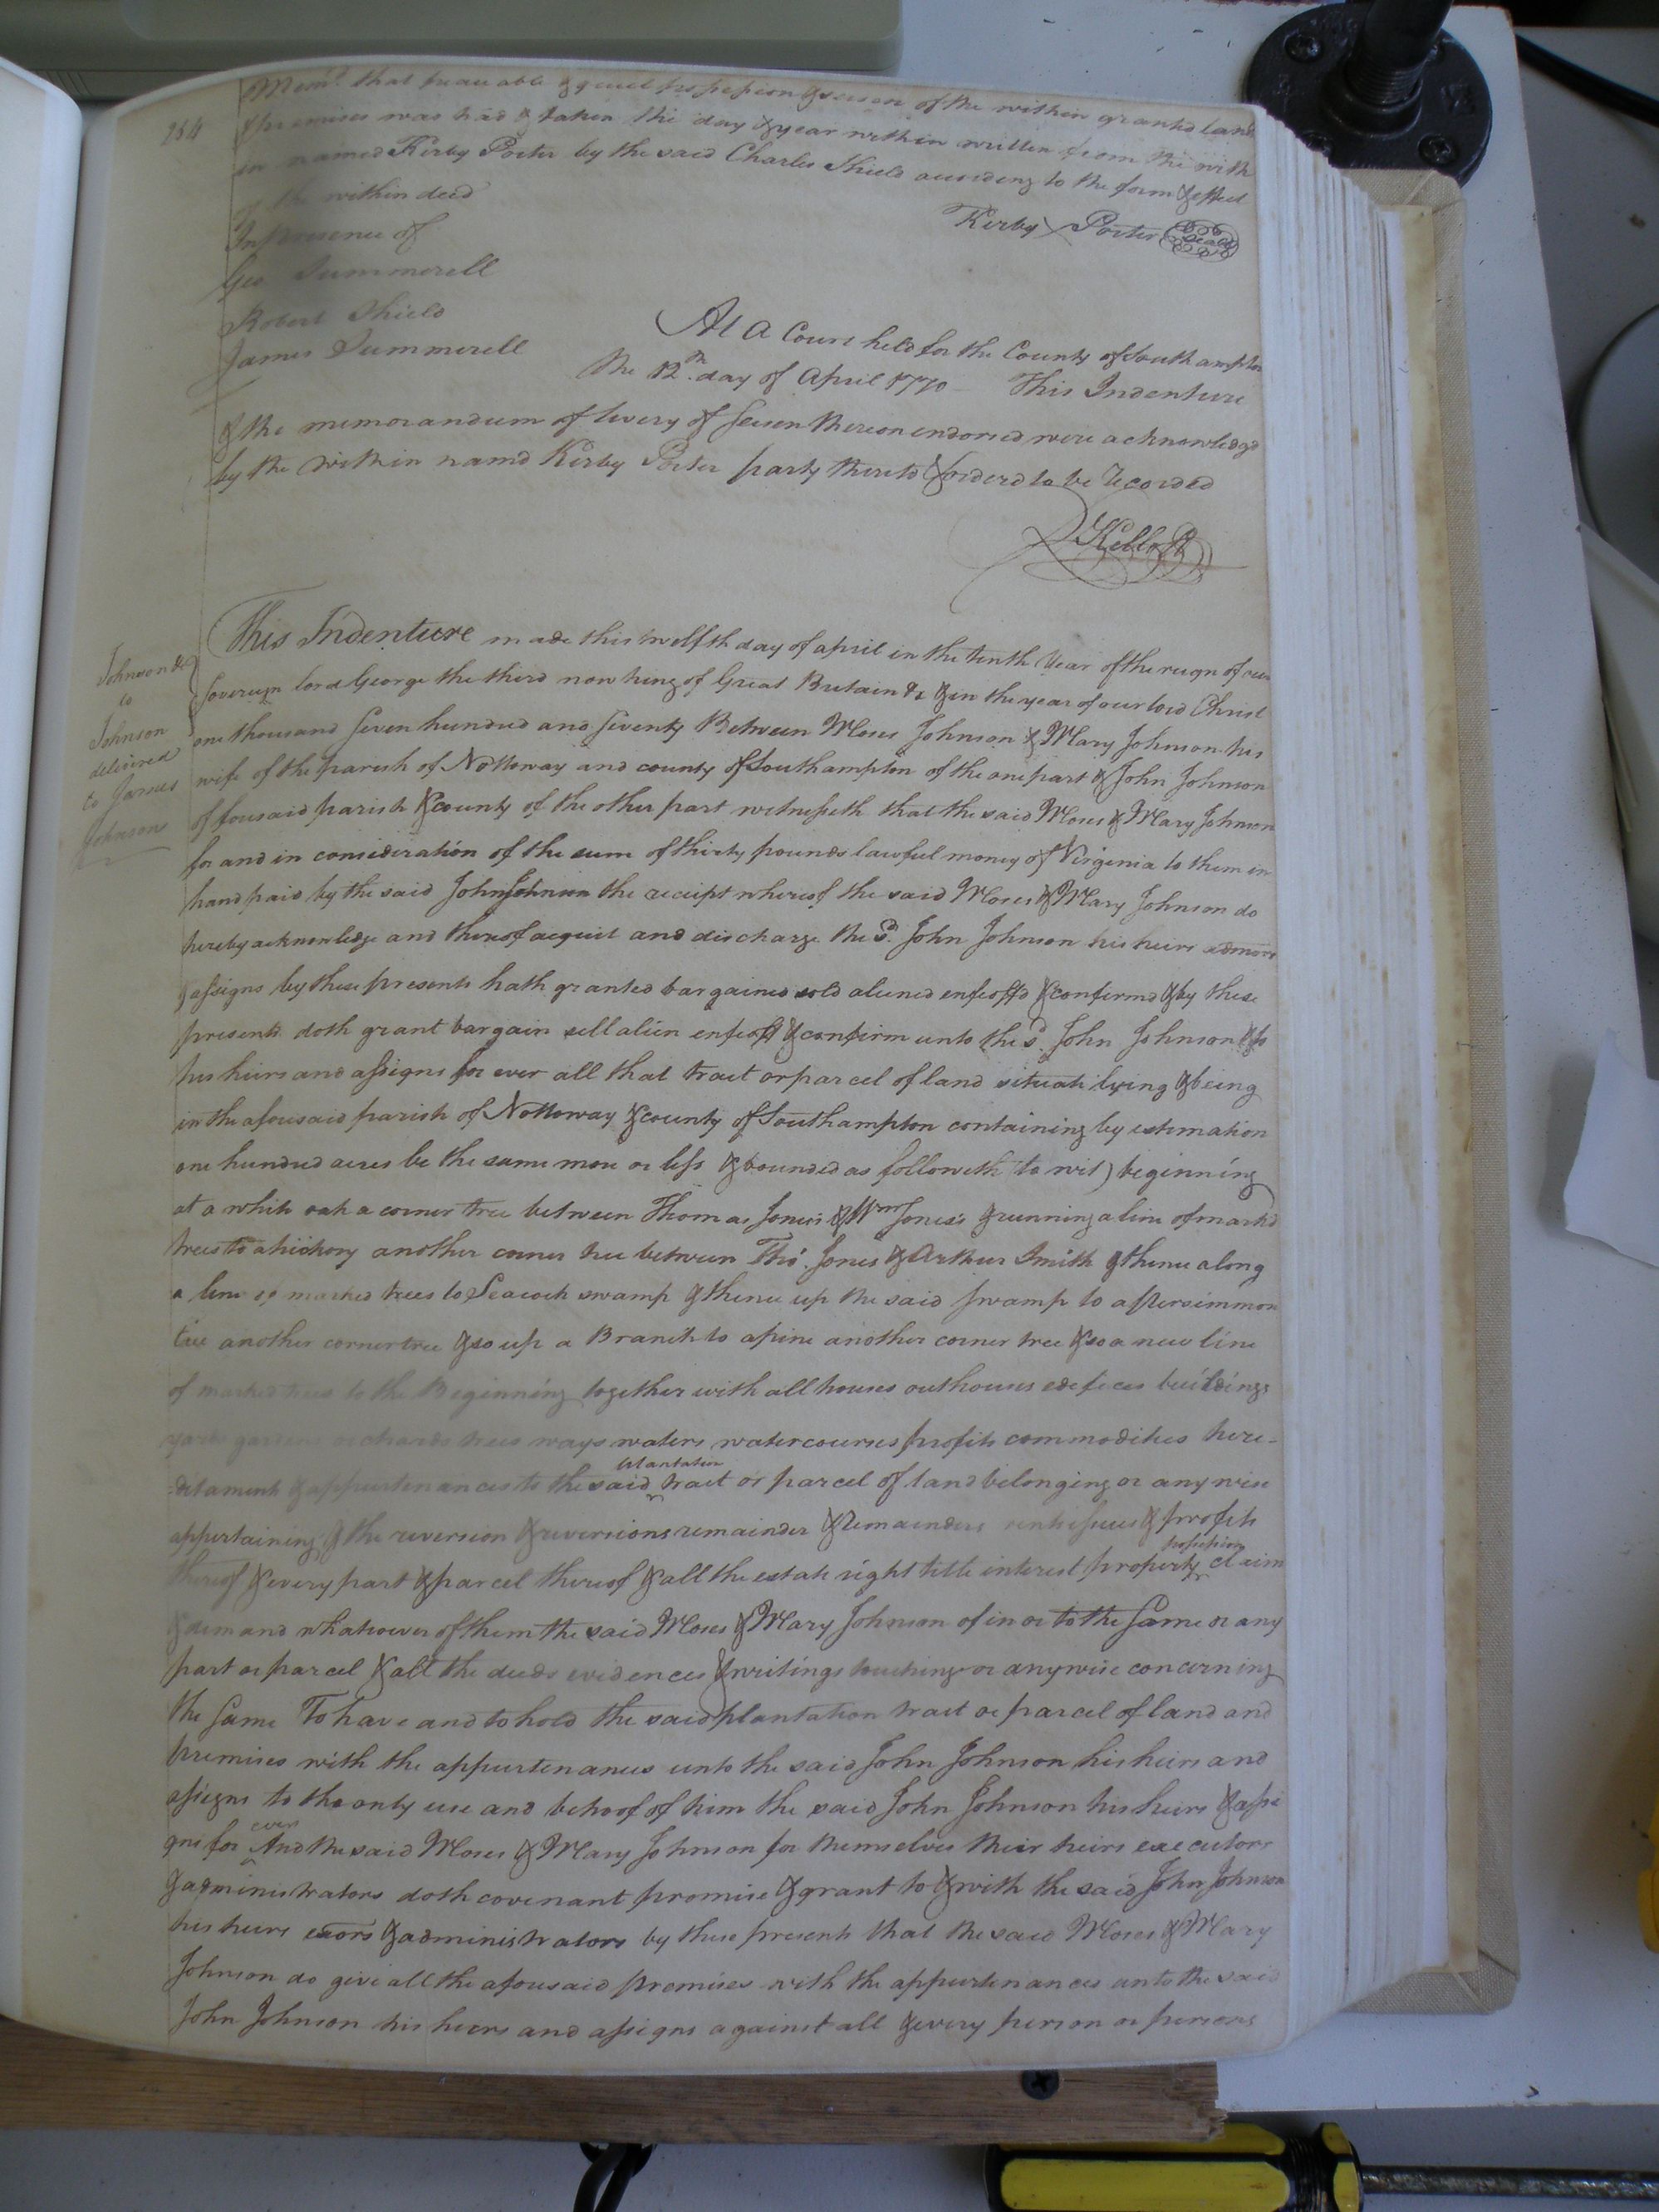 264
Memo. that peaceable & quiet possession & seisen of the within granted land
& premises was had & taken the day & year within written from the with
in named Kirby Porter by the said Charles Shield according to the form & effect
of the within deed
Kirby X Porter (Seal)
In presence of
Geo Summerell
Robert Shield
James Summerell
At a Court held for the County of Southampton
the 12th. day of April 1770 This Indenture
& the memorandum of livery of Seisen thereon endorsed were acknowledgd
by the within namd Kirby Porter party thereto & orderd to be Recorded
R Kello
Johnson &c
to
Johnson
delivered
to James
Johnson
This Indenture made this twelfth day of april in the tenth Year of the reign of our
Sovereign lord George the third now king of Great Britain &c & in the year of our lord Christ
one thousand Seven hundred and Seventy Between Moses Johnson & Mary Johnson his
wife of the parish of Nottoway and county of Southampton of the one part & John Johnson
of foresaid parish & county of the other part witnesseth that the said Moses & Mary Johnson
for and in consideration of the sum of thirty pounds lawful money of Virginia to them in
hand paid by the said John Johnson the receipt whereof the said Moses & Mary Johnson do
hereby acknowledge and thereof acquit and discharge the sd. John Johnson his heirs admors
& assigns by these presents hath granted bargained sold aliened enfeoffd & confirmd & by these
presents doth grant bargain sell alien enfeoff & confirm unto the sd. John Johnson & to
his heirs and assigns for ever all that tract or parcel of land situate lying & being
in the aforesaid parish of Nottoway & county of Southampton containing by estimation
one hundred acres be the same more or less & bounded as followeth to wit) beginning
at a white oak a corner tree between Thomas Jones & Wm Jones's & running a line of markd
trees to a hickory another corner tree between Tho. Jones & Arthur Smith & thence along
a line of marked trees to Seacock swamp & thence up the said swamp to a persimmon
tree another corner tree & so up a Branch to a pine another corner tree & so a new line
of marked trees to the Beginning together with all houses outhouses edefices buildings
yards gardens orchards trees ways waters watercourses profits commodities here-
-ditaments & appurtenances to the said plantation tract or parcel of land belonging or any wise
appertaining & the reversion & reversions remainder & remainders rents issues & profits
thereof & every part & parcel thereof & all the estate right title interest property possession claim
& demand whatsoever of them the said Moses & Mary Johnson of in or to the Same or any
part or parcel & all the deeds evidences & writings touching or anywise concerning
the Same To have and to hold the said plantation tract or parcel of land and
premises with the appurtenances unto the said John Johnson his heirs and
assigns to the only use and behoof of him the said John Johnson his heirs & assi
gns for ever And the said Moses & Mary Johnson for themselves their heirs executors
& administrators doth covenant promise & grant to & with the said John Johnson
his heirs exors & administrators by these presents that the said Moses & Mary
Johnson do give all the aforesaid premises with the appurtenances unto the said
John Johnson his heirs and assigns against all & every person or persons